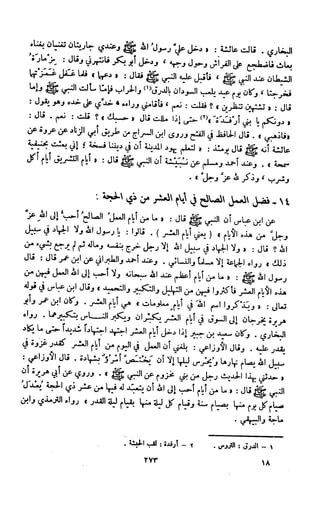 البخاري . قالت عائشة : « دخل علي رسول الله ﷺ وعندي جاريتان تغنيان بغناء
بعاث فاضطجع على الفراش وحول وجهه ، ودخل أبو بكر فانتهرني وقال : مزمارة
الشيطان عند النبي ﷺ ، فأقبل عليه النبي ﷺ فقال : « دعها » فلما غفل غمزتهما
فخرجتا ، وكان يوم عيد يلعب السودان بالدرق(١) والحراب فإما سألت النبي ﷺ وإما
قال : « تشتهين تنظرين » ؟ فقلت : نعم ، فأقامني وراءه ، خدي على خده وهو يقول :
« دونكم يا بني أرفدة »(٢) حتى إذا مللت قال « حسبك » ؟ قلت : نعم . قال :
« فاذهبي » . قال الحافظ في الفتح وروى ابن السراج من طريق أبي الزناد عن عروة عن
عائشة أنه ﷺ قال يومئذ : « لتعلم يهود المدينة أن في ديننا فسحة ؛ إني بعثت بحنيفية
سمحة » . وعند أحمد ومسلم عن نبيشة أن النبي ﷺ قال : « أيام التشريق أيام أكل
وشرب ، وذكر لله عز وجل » .
١٤ - فضل العمل الصالح في أيام العشر من ذي الحجة :
عن ابن عباس أن النبي ﷺ قال : « ما من أيام العمل الصالح أحب إلى الله عز
وجل من هذه الأيام » ( يعني أيام العشر ) . قالوا : يا رسول الله ولا الجهاد في سبيل
الله ؟ قال : « ولا الجهاد في سبيل الله إلا رجل خرج بنفسه وماله ثم لم يرجع بشيء من
ذلك » رواه الجماعة إلا مسلما والنسائي . وعند أحمد والطبراني عن ابن عمر قال : قال
رسول الله ﷺ : « ما من أيام أعظم عند الله سبحانه ولا أحب إلى الله العمل فيهن من
هذه الأيام العشر فأكثروا فيهن من التهليل والتكبير والتحميد » وقال ابن عباس في قوله
تعالى : « ويذكروا اسم الله في أيام معلومات » هي أيام العشر . وكان ابن عمر وأبو
هريرة يخرجان إلى السوق في أيام العشر يكبران ويكبر الناس بتكبيرهما . رواه
البخاري . وكان سعيد بن جبير إذا دخل أيام العشر اجتهد اجتهاداً شديداً حتى ما يكاد
يقدر عليه . وقال الأوزاعي : بلغني أن العمل في اليوم من أيام العشر كقدر غزوة في
سبيل الله يصام نهارها ويحرس ليلها إلا أن يختص امرؤ بشهادة . قال الأوزاعي :
« حدثني بهذا الحديث رجل من بني مخزوم عن النبي ﷺ » . وروي عن أبي هريرة أن
النبي ﷺ قال : « ما من أيام أحب إلى الله أن يتعبد له فيها من عشر ذي الحجة يعدل
صيام كل يوم منها بصيام سنة وقيام كل ليلة منها بقيام ليلة القدر » رواه الترمذي وابن
ماجة والبيهقي .
١ - الدرق : التروس . ٢ - أرفدة : لقب الحبشة .
١٨ ٢٧٣